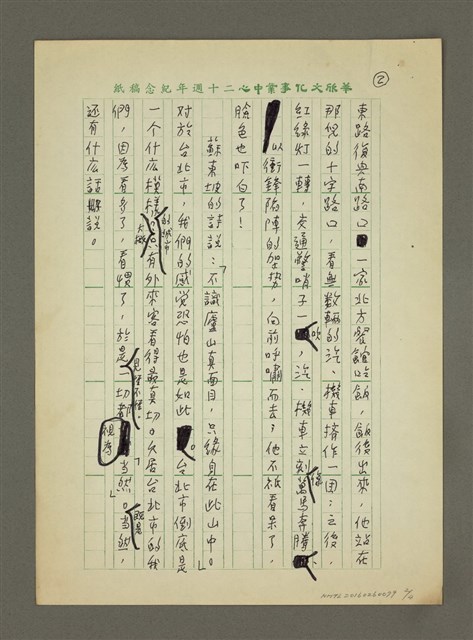 華欣文化事業中心二十週年紀念稿紙
②
東路復興南路口一家北方餐館吃飯，飯後出來，他站在
那兒的十字路口，看無數輛的汽、機車擠作一團；之後，
紅綠灯一轉，交通警哨子一吹，汽、機車立刻像萬馬奔騰
以衝鋒陷陣的架势，向前呼嘯而去；他不祇看呆了，
臉色也吓白了！
蘇東坡的詩說：「不識廬山真面目，只緣身在此山中。」
对於台北市，我們的感觉恐怕也是如此。台北市倒底是
一个什么模樣的城市，大概只有外來客看得最真切。久居台北市的我
們，因為看多了，看慣了，於是見怪不怪，一切都視為當然。既是「當然」，
還有什么話說。